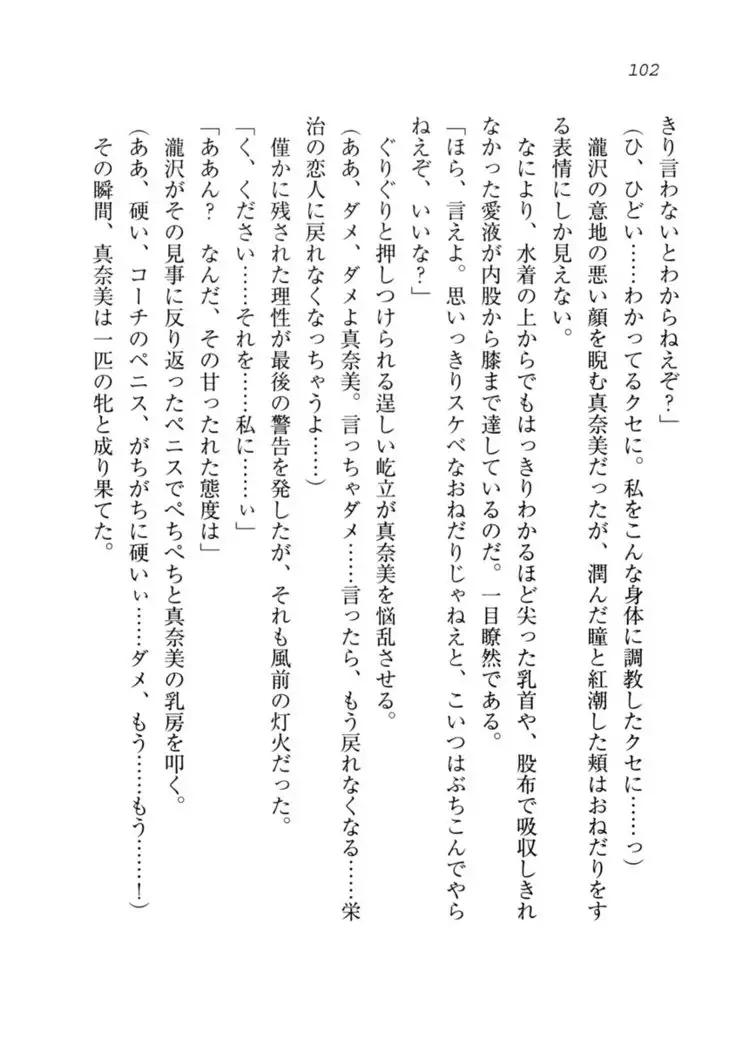 102
きり言わないとわからねえぞ？」
（ひ、ひどい……わかってるクセに。私をこんな身体に調教したクセに……っ）
瀧沢の意地の悪い顔を睨む真奈美だったが、潤んだ瞳と紅潮した頬はおねだりをす
る表情にしか見えない。
なにより、水着の上からでもはっきりわかるほど尖った乳首や、股布で吸収しきれ
なかった愛液が内股から膝まで達しているのだ。一目瞭然である。
「ほら、言えよ。思いっきりスケベなおねだりじゃねえと、こいつはぶちこんでやら
ねえぞ、いいな？」
ぐりぐりと押しつけられる逞しい屹立が真奈美を悩乱させる。
（ああ、ダメ、ダメよ真奈美。言っちゃダメ……言ったら、もう戻れなくなる……栄
治の恋人に戻れなくなっちゃうよ……）
僅かに残された理性が最後の警告を発したが、それも風前の灯火だった。
「く、ください……それを……私に……ぃ」
「ああん？　なんだ、その甘ったれた態度は」
瀧沢がその見事に反り返ったペニスでぺちぺちと真奈美の乳房を叩く。
（ああ、硬い、コーチのペニス、がちがちに硬いぃ……ダメ、もう……もう……！）
その瞬間、真奈美は一匹の牝と成り果てた。